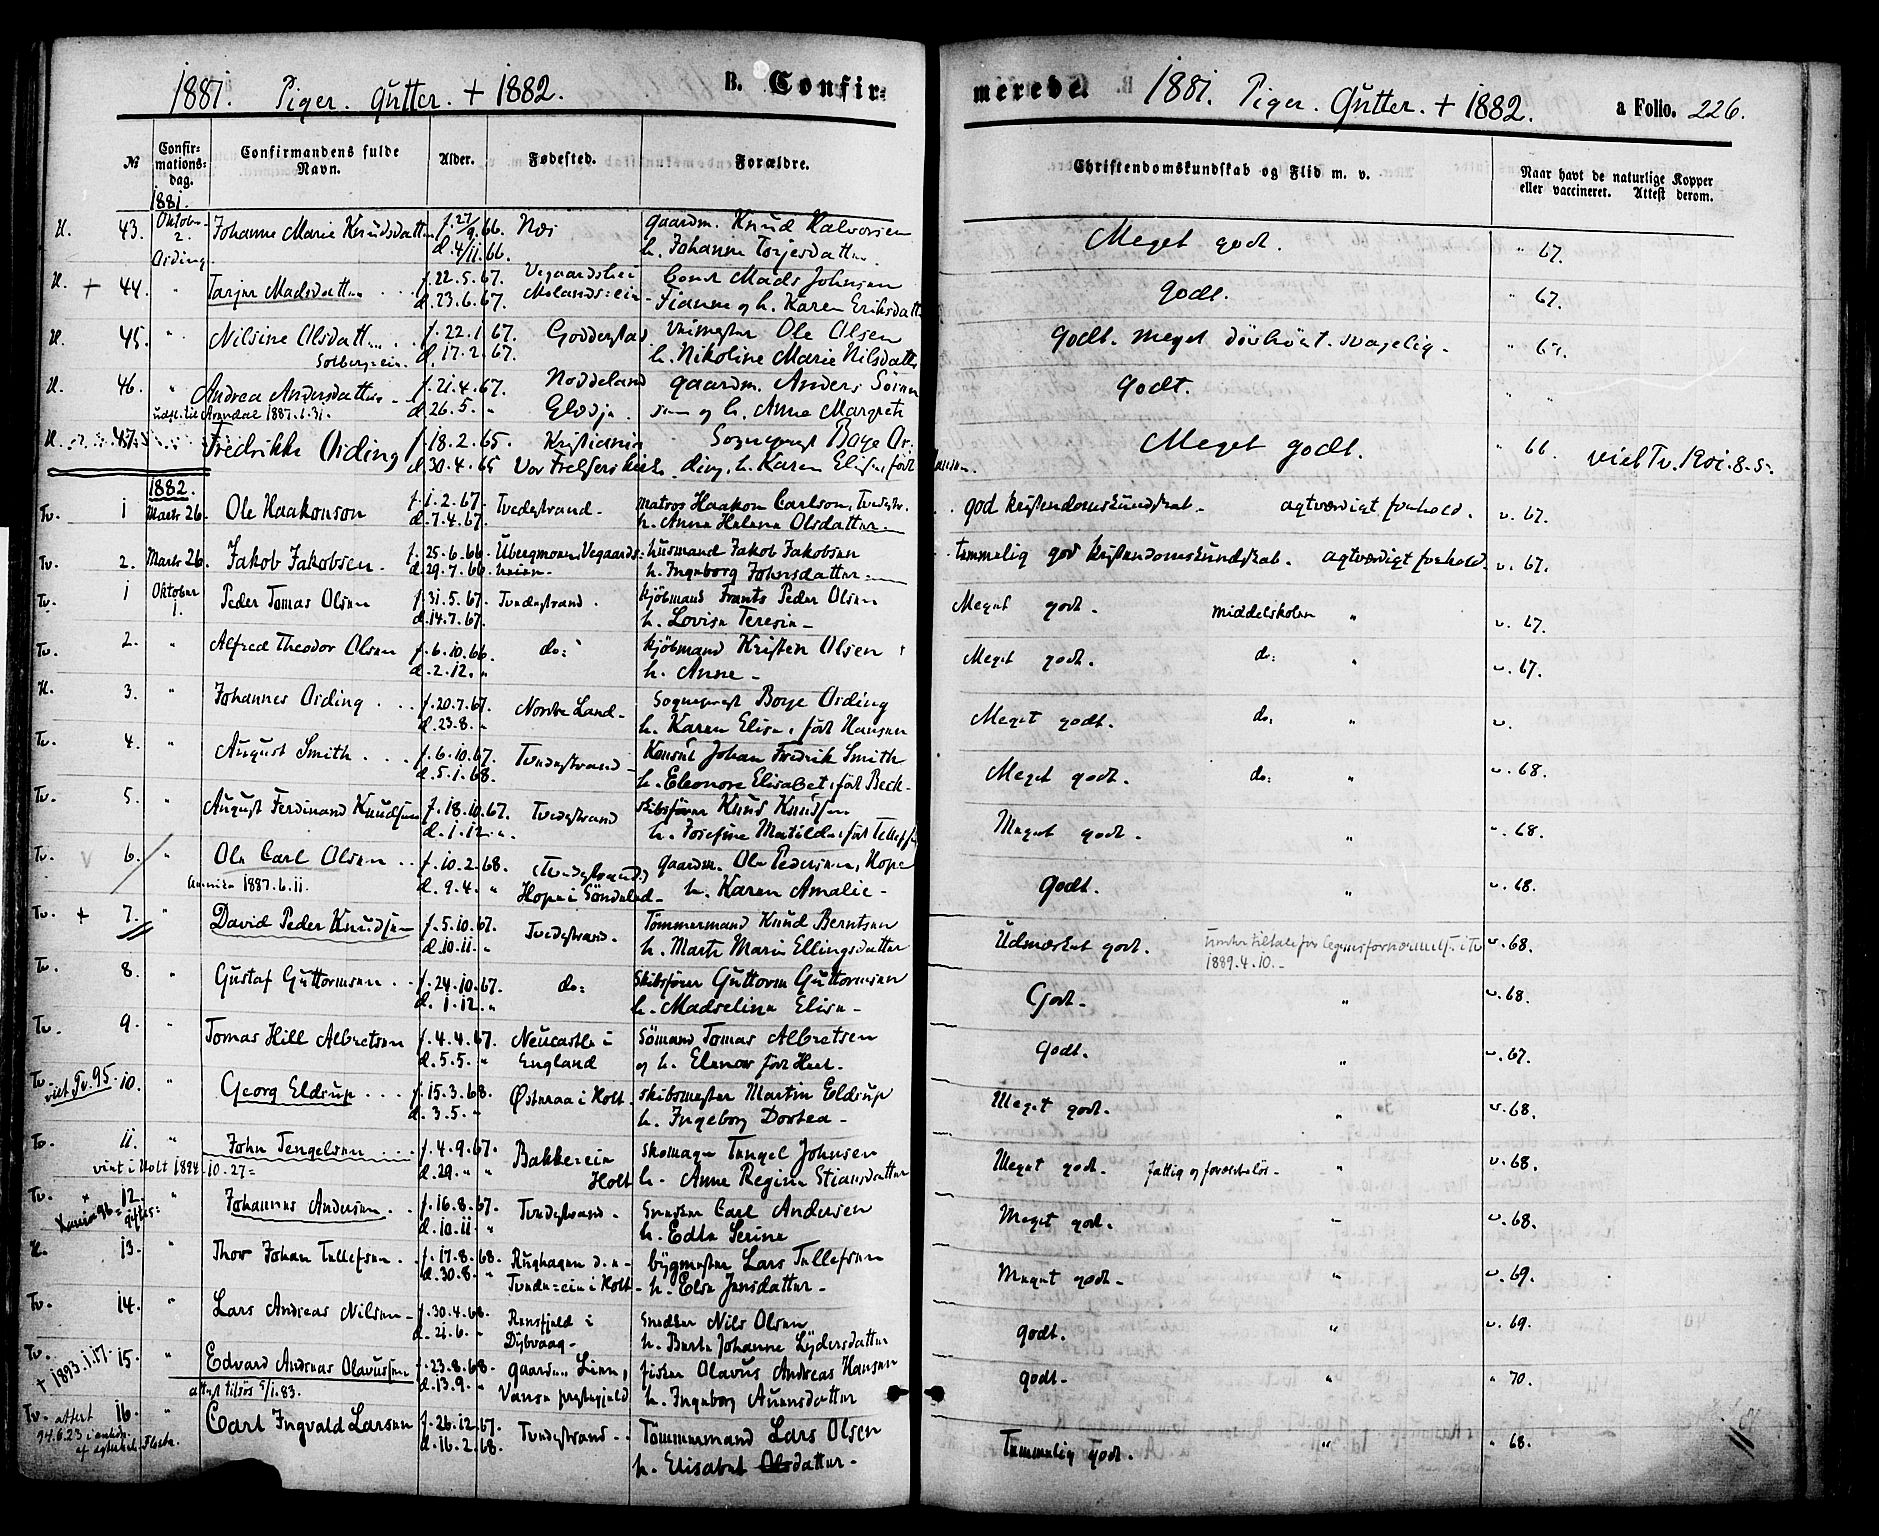 1881. Piger. Gutter. + 1882. B. Confir-
№ Confir-mations-dag. Confirmandens fulde Navn. Alder. Fødested. Forældre.
1881.
H. 43. Oktober 2. Johanne Marie Knudsdatter f. 27/9.66. Næs gaardm. Knud Halvorsen
Oiding d. 4/11.66. h. Johanne Torjesdatter
H. + 44. " Tarjer Madsdatter f. 22.5.67. Vegaardsheien Mads Johnsen
d. 23.6.67. h. Karen Eriksdatter
H. 45. " Nilsine Olsdatter f. 22.1.67. Goderstad Ole Olsen
Solberg=ein. d. 17.2.67. h. Nikoline Marie Nilsdatter
H. 46. " Andrea Andersdatter f. 21.4.67. Noddeland gaardm. Anders Søren
udst. til Arendal 1887.1.31. d. 26.5. " Glodja. sen og h. Anne Margrete
H. 47. Fredrikke Oiding f. 18.2.65. Kristiania Sogneprest Boye Oi-
d. 30.4.65 Vor Frelsers kirke ding, h. Karen Elise, født
1882.
Tv. 1 Marts 26. Ole Haakonson f. 1.2.67. Tvedestrand. Matros Haakon Carlson, Tvedestr.
d. 7.4.67. h. Anne Helene Olsdatter
Tv. 2. Marts 26. Jakob Jakobsen. f. 25.6.66. Ubergmoen Vegaards- husmand Jakob Jakobsen
d. 29.7.66. heien. h. Ingeborg Johnsdatter
Tv. 1 Oktober 1. Peder Tomas Olsen f. 31.5.67. Tvedestrand. kjöbmand Frants Peder Olsen
d. 14.7.67. h. Lovise Teresia
Tv. 2. " Alfred Theodor Olsen f. 6.10.66. do: kjöbmand Kristen Olsen
d. 2.12. " h. Anne
H. 3. " Johannes Oiding f. 20.7.67. Nordre Land Sogneprest Boye Oiding
d. 23.8. " h. Karen Elise, født Hansen
Tv. 4. " August Smith f. 6.10.67. Tvedestrand Konsul Johan Fredrik Smith
d. 5.1.68. h. Eleonore Elisabet, født Beck
Tv. 5. " August Ferdinand Knudsen f. 18.10.67. Tvedestrand skibsfører Knud Knudsen
d. 1.12. ". h. Josefine Matilde, født Tellefsen
Tv. 6. " Ole Carl Olsen f. 10.2.68. (Tvedestrand.) gaardm. Ole Pedersen, Hope
Amerika 1887.6.11. d. 9.4. " Hope i Söndeled h. Karen Amalie
Tv. + 7. " David Peder Knudsen f. 5.10.67. Tvedestrand. Tömmermand Knud Berntsen
d. 10.11. " h. Marte Marie Ellingsdatter
Tv. 8. " Gustaf Guttormsen f. 24.10.67. do: Skibsfører Guttorm Guttormsen
d. 1.12. " h. Madseline Elise
Tv. 9. " Tomas Hill Albretsen f. 4.4.67. Neucastle i Sömand Tomas Albretsen
d. 5.5. " England og h. Elenor født
Tv. viet Tv. 95. 10. " Georg Eldrup f. 15.3.68. Østeraa i Holt. skibsmester Martin Eldrup
d. 3.5. " h. Ingeborg Dortea
Tv. 11. " John Tengelsen f. 4.9.67. Bakke=ein skomager Tengel Johnsen
viet i Holt 1894.10.27= d. 29. " " Holt h. Anne Regine Stiansdatter
Tv. 12. " Johannes Andersen f. 16.8.67. Tvedestrand. Snedker Carl Andersen
giftes= d. 10.11 " h. Edle Serine
H. 13. " Thor Johan Tellefsen f. 17.8.68. Rughagen bygmester Lars Tellefsen
d. 30.8. " Tvede=ein i Holt h. Else Jensdatter
Tv. 14. " Lars Andreas Nilsen f. 30.4.68. Rensfjeld i Snedker Nils Olsen
d. 21.6. " Dybvaag h. Berte Johanne Lydersdatter
Tv. + 1893.1.17. 15. " Edvard Andreas Olavussen f. 23.8.68. gaarden fisker Olavus Andreas Hansen
attest tilsös 5/1.83. d. 13.9. " Vanse prestegjeld h. Ingeborg Aanensdatter
Tv. attest 16. " Carl Ingvald Larsen f. 26.12.67. Tvedestrand. Tömmermand Lars Olsen
94.6.23 d. 16.2.68. h. Elisabet Olsdatter
merede. 1881. Piger. Gutter. + 1882. a Folio. 226.
Christendomskundskab og Flid m. v. Naar havt de naturlige Kopper eller vaccineret. Attest derom.
Meget godt. " 67.
Godt. " 67.
Godt. Meget dövhört. svagelig. " 67.
Godt. " "
Meget godt. " 66. viet Tv. 1801.8.5.
Hansen.
god kristendomskundskab. agtværdigt forhold. v. 67.
temmelig god kristendomskundskab. agtværdigt forhold. v. 67.
Meget godt. Middelskolen " v. 67.
Meget godt. do: " v. 67.
Meget godt. do: " v.
Meget godt. do: " v. 68.
Meget godt. " v. 68.
Godt. " v. 68.
Udmærket godt. under tiltale for legemsfornærmelse i Tv v. 68.
1889.4.10.
Godt. " v. 68.
Godt. " v. 67.
Meget godt. " v. 68.
Meget godt. fattig og forældreløs. " v. 68.
Meget godt. " v. 68.
Meget godt. " v. 69.
Godt. " v. 69.
Godt. " " 70.
Temmelig godt. " " 68.